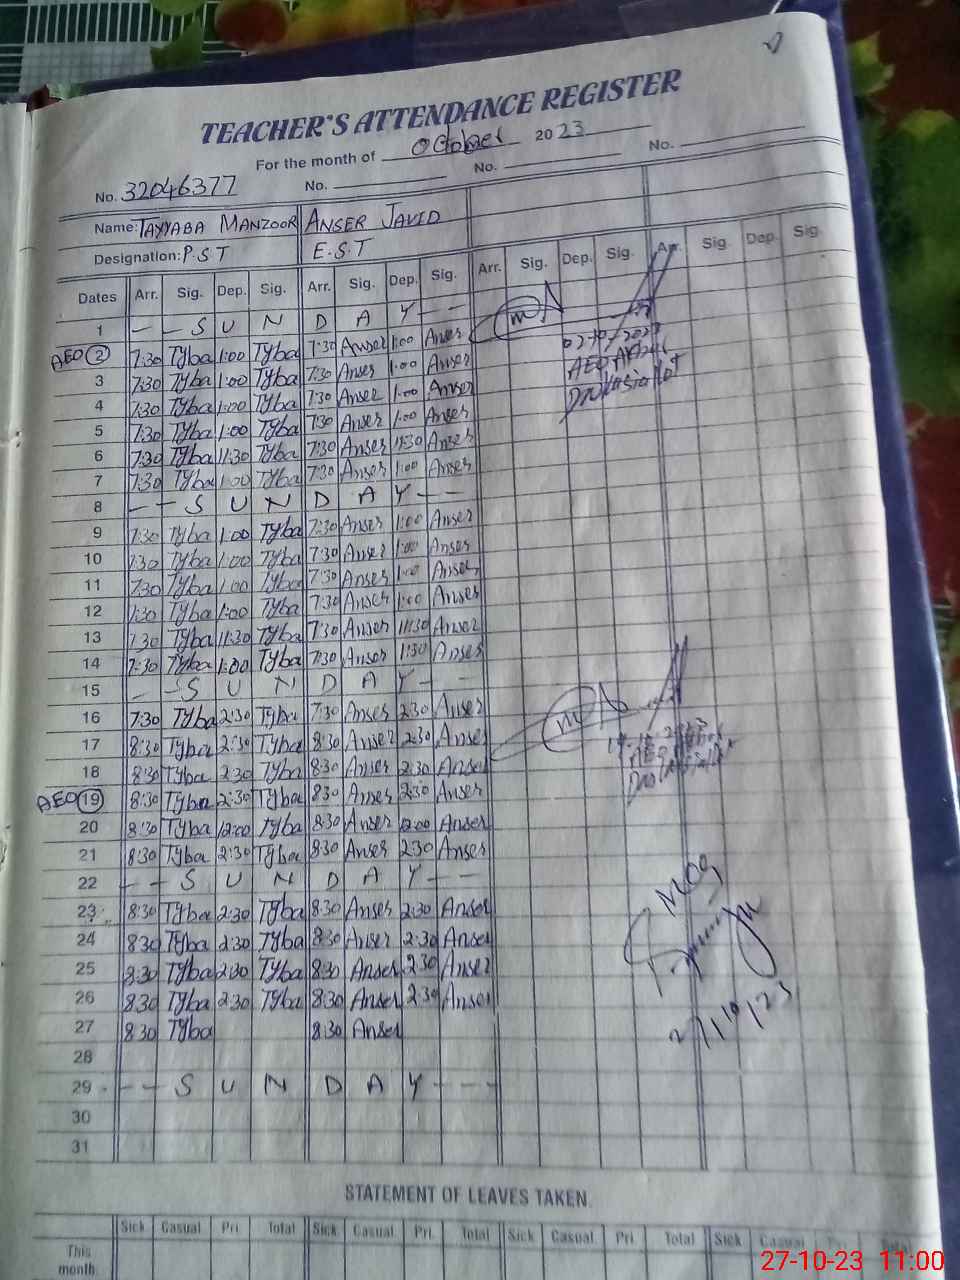 TEACHER'S ATTENDANCE REGISTER
For the month of October 2023
No. 32046377 No. No. No.
Name: TAYYABA MANZOOR ANSER JAVID
Designation: P.S.T E.S.T
Dates Arr. Sig. Dep. Sig. Arr. Sig. Dep. Sig. Arr. Sig. Dep. Sig. Arr. Sig. Dep. Sig.
1 - - S U N D A Y - -
AEO 2 7:30 Tyba 1:00 Tyba 7:30 Anser 1:00 Anser
02-10-2023
AEO
3 7:30 Tyba 1:00 Tyba 7:30 Anser 1:00 Anser
4 7:30 Tyba 1:00 Tyba 7:30 Anser 1:00 Anser
5 7:30 Tyba 1:00 Tyba 7:30 Anser 1:00 Anser
6 7:30 Tyba 11:30 Tyba 7:30 Anser 11:30 Anser
7 7:30 Tyba 1:00 Tyba 7:30 Anser 1:00 Anser
8 - - S U N D A Y - -
9 7:30 Tyba 1:00 Tyba 7:30 Anser 1:00 Anser
10 7:30 Tyba 1:00 Tyba 7:30 Anser 1:00 Anser
11 7:30 Tyba 1:00 Tyba 7:30 Anser 1:00 Anser
12 7:30 Tyba 1:00 Tyba 7:30 Anser 1:00 Anser
13 7:30 Tyba 11:30 Tyba 7:30 Anser 11:30 Anser
14 7:30 Tyba 1:00 Tyba 7:30 Anser 1:30 Anser
15 - - S U N D A Y - -
16 7:30 Tyba 2:30 Tyba 7:30 Anser 2:30 Anser
17 8:30 Tyba 2:30 Tyba 8:30 Anser 2:30 Anser
AEO
18 8:30 Tyba 2:30 Tyba 8:30 Anser 2:30 Anser
AEO 19 8:30 Tyba 2:30 Tyba 8:30 Anser 2:30 Anser
20 8:30 Tyba 12:00 Tyba 8:30 Anser 12:00 Anser
21 8:30 Tyba 2:30 Tyba 8:30 Anser 2:30 Anser
22 - - S U N D A Y - -
23 8:30 Tyba 2:30 Tyba 8:30 Anser 2:30 Anser
24 8:30 Tyba 2:30 Tyba 8:30 Anser 2:30 Anser
25 8:30 Tyba 2:30 Tyba 8:30 Anser 2:30 Anser
26 8:30 Tyba 2:30 Tyba 8:30 Anser 2:30 Anser
27 8:30 Tyba 8:30 Anser
27/10/23
28
29 - - S U N D A Y - - -
30
31
STATEMENT OF LEAVES TAKEN.
Sick Casual Pri. Total Sick Casual Pri. Total Sick Casual Pri. Total Sick Casual Pri. Total
This
month.
27-10-23 11:00